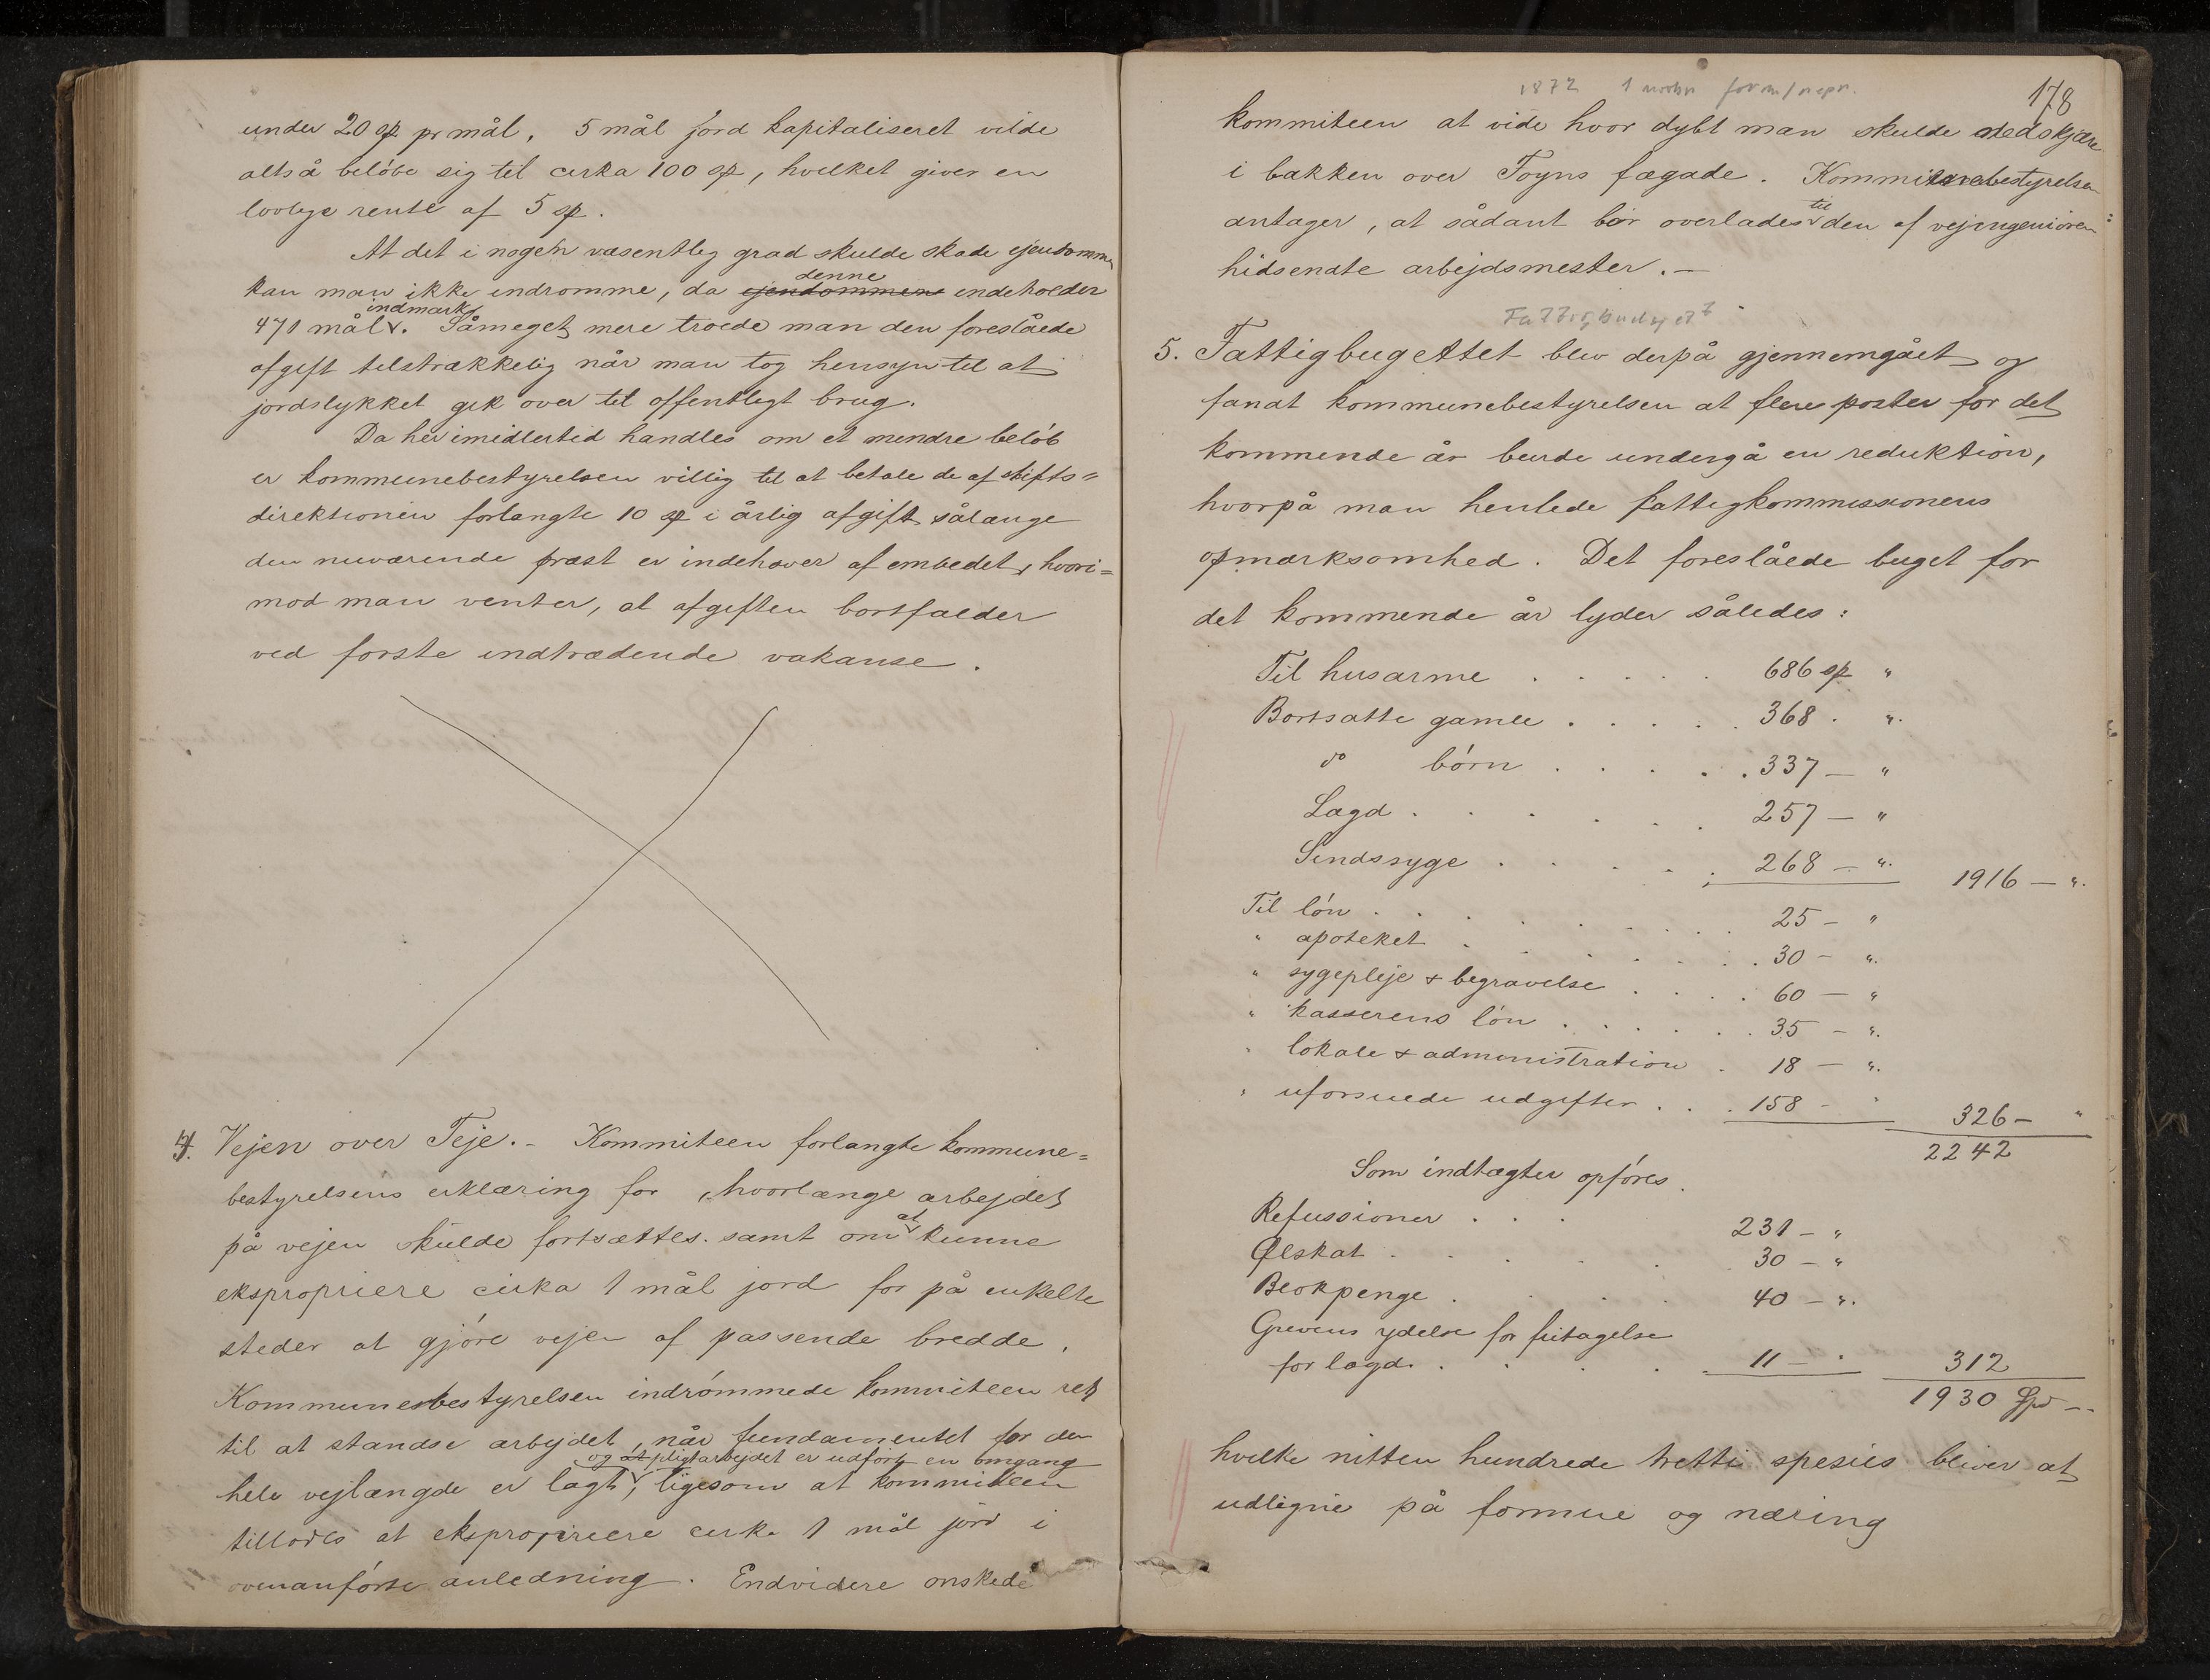 under 20 sp pr mål. 5 mål jord kapitaliseret vilde
altså beløbe sig til cirka 100 sp, hvilket giver en
lovlige rente af 5 sp.
At det i nogen væsentlig grad skulde skade ejendommen
denne
kan man ikke indrømme, da ejendommen indeholder
indmark
471 mål. Såmeget mere troede man den foreslåede
afgift tilstrækkelig når man tog hensyn til at
jordstykket gik over til offentligt brug.
Da her imidlertid handles om et mindre beløb
er kommunebestyrelsen villig til at betale de af stifts=
direktionen forlangte 10 sp i årlig afgift sålænge
den nuværende præst er indehaver af embedet, hvori=
mod man venter, at afgiften bortfalder
ved første indtrædende vakanse.
4. Vejen over Teje. - Kommiteen forlangte kommune=
bestyrelsens erklæring for, hvorlænge arbejdet
at
på vejen skulde fortsættes. samt om kunne
ekspropriere cirka 1 mål jord for på enkelte
steder at gjøre vejen af passende bredde.
Kommunesbestyrelsen indrømmede kommiteen ret
til at standse arbejdet, når fundamentet for den
og at pligtarbejdet er udført en omgang
hele vejlængde er lagt, ligesom at kommiteen
tillodes at ekspropriere cirka 1 mål jord i
ovenanførte anledning. Endvidere ønskede
1872 1 form/repr.
178
kommiteen at vide hvor dybt man skulde nedskjære
i bakken over Foyns fægade. Kommunebestyrelsen
til
antager, at sådant bør overlades den af vejingeniøren
hidsendte arbejdsmester. —
Fattigbudsjett
5. Fattigbugettet blev derpå gjennemgået og
fandt kommunebestyrelsen at flere poster for det
kommende år burde undergå en reduktion,
hvorpå man henlede fattigkommissionens
opmærksomhed. Det foreslåede buget for
det kommende år lyder således:
Til husarme . . . . . 686 sp "
Bortsatte gamle . . . . . 368 . ".
do børn . . . . . 337 — "
Lægd . . . . . . 257 — "
Sindssyge . . . . . 268 — ". 1916 — ".
Til løn . . . . . . . . 25 — "
" apoteket . . . . . . . 30 — ".
" sygepleje & begravelse . . . . 60 — "
" kasserens løn . . . . . . 35 — ".
" lokale & administration . 18 — ".
" uforsuede udgifter . . . 158 — " 326 — "
2242
Som indtægter opføres.
Refussioner . . . 231 — "
Ølskat . . . . . 30 — "
Beokpenge . . . . 40 — ".
Grevens ydelse for fritagelse
for lægd. . . . . . 11 — " 312
1930 Spd —
hvilke nitten hundrede tretti spesies bliver at
udligne på formue og næring